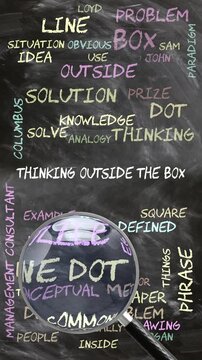 LOYD
LINE
PROBLEM
SITUATION
OBVIOUS
BOX
SAM
IDEA
USE
JOHN
PARADIGM
OUTSIDE
SOLUTION
PRIZE
COLUMBUS
KNOWLEDGE
DOT
SOLVE
ANALOGY
THINKING
THINKING OUTSIDE THE BOX
MANAGEMENT CONSULTANT
EXAMPLE
SQUARE
DEFINED
NE DOT
NCEPTUAL
ME
APER
TIMES
PHRASE
COMMON
AWING
PEOPLE
INSIDE